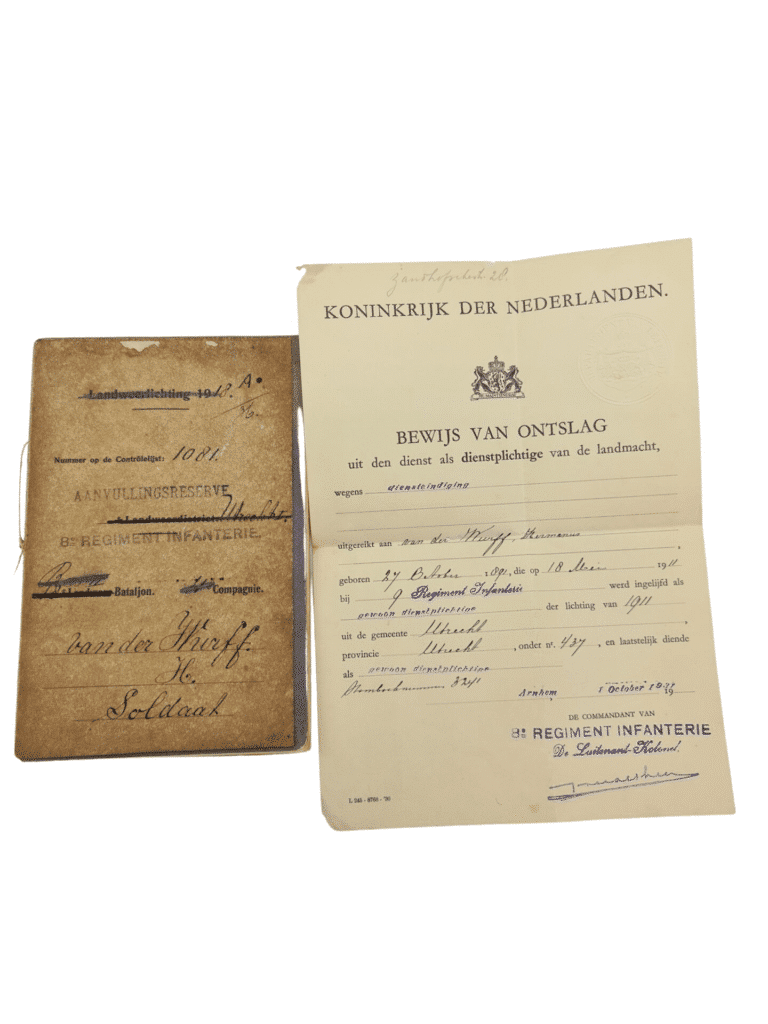 Landweerlichting 1918. A.
6.
Nummer op de Contrôlelijst: 1081.
AANVULLINGSRESERVE
Landweerdistrict: Utrecht.
8e REGIMENT INFANTERIE.
Bataljon. Compagnie.
van der Wurff.
H.
Soldaat
KONINKRIJK DER NEDERLANDEN.
BEWIJS VAN ONTSLAG
uit den dienst als dienstplichtige van de landmacht,
wegens diensteindiging
uitgereikt aan van der Wurff, Hermanus
geboren 27 October 1891, die op 18 Mei 1911
bij 9 Regiment Infanterie werd ingelijfd als
gewoon dienstplichtige der lichting van 1911
uit de gemeente Utrecht
provincie Utrecht, onder nr. 437, en laatstelijk diende
als gewoon dienstplichtige
Stamboeknummer 3241
Arnhem 1 October 19
DE COMMANDANT VAN
8e REGIMENT INFANTERIE
De Luitenant-Kolonel.